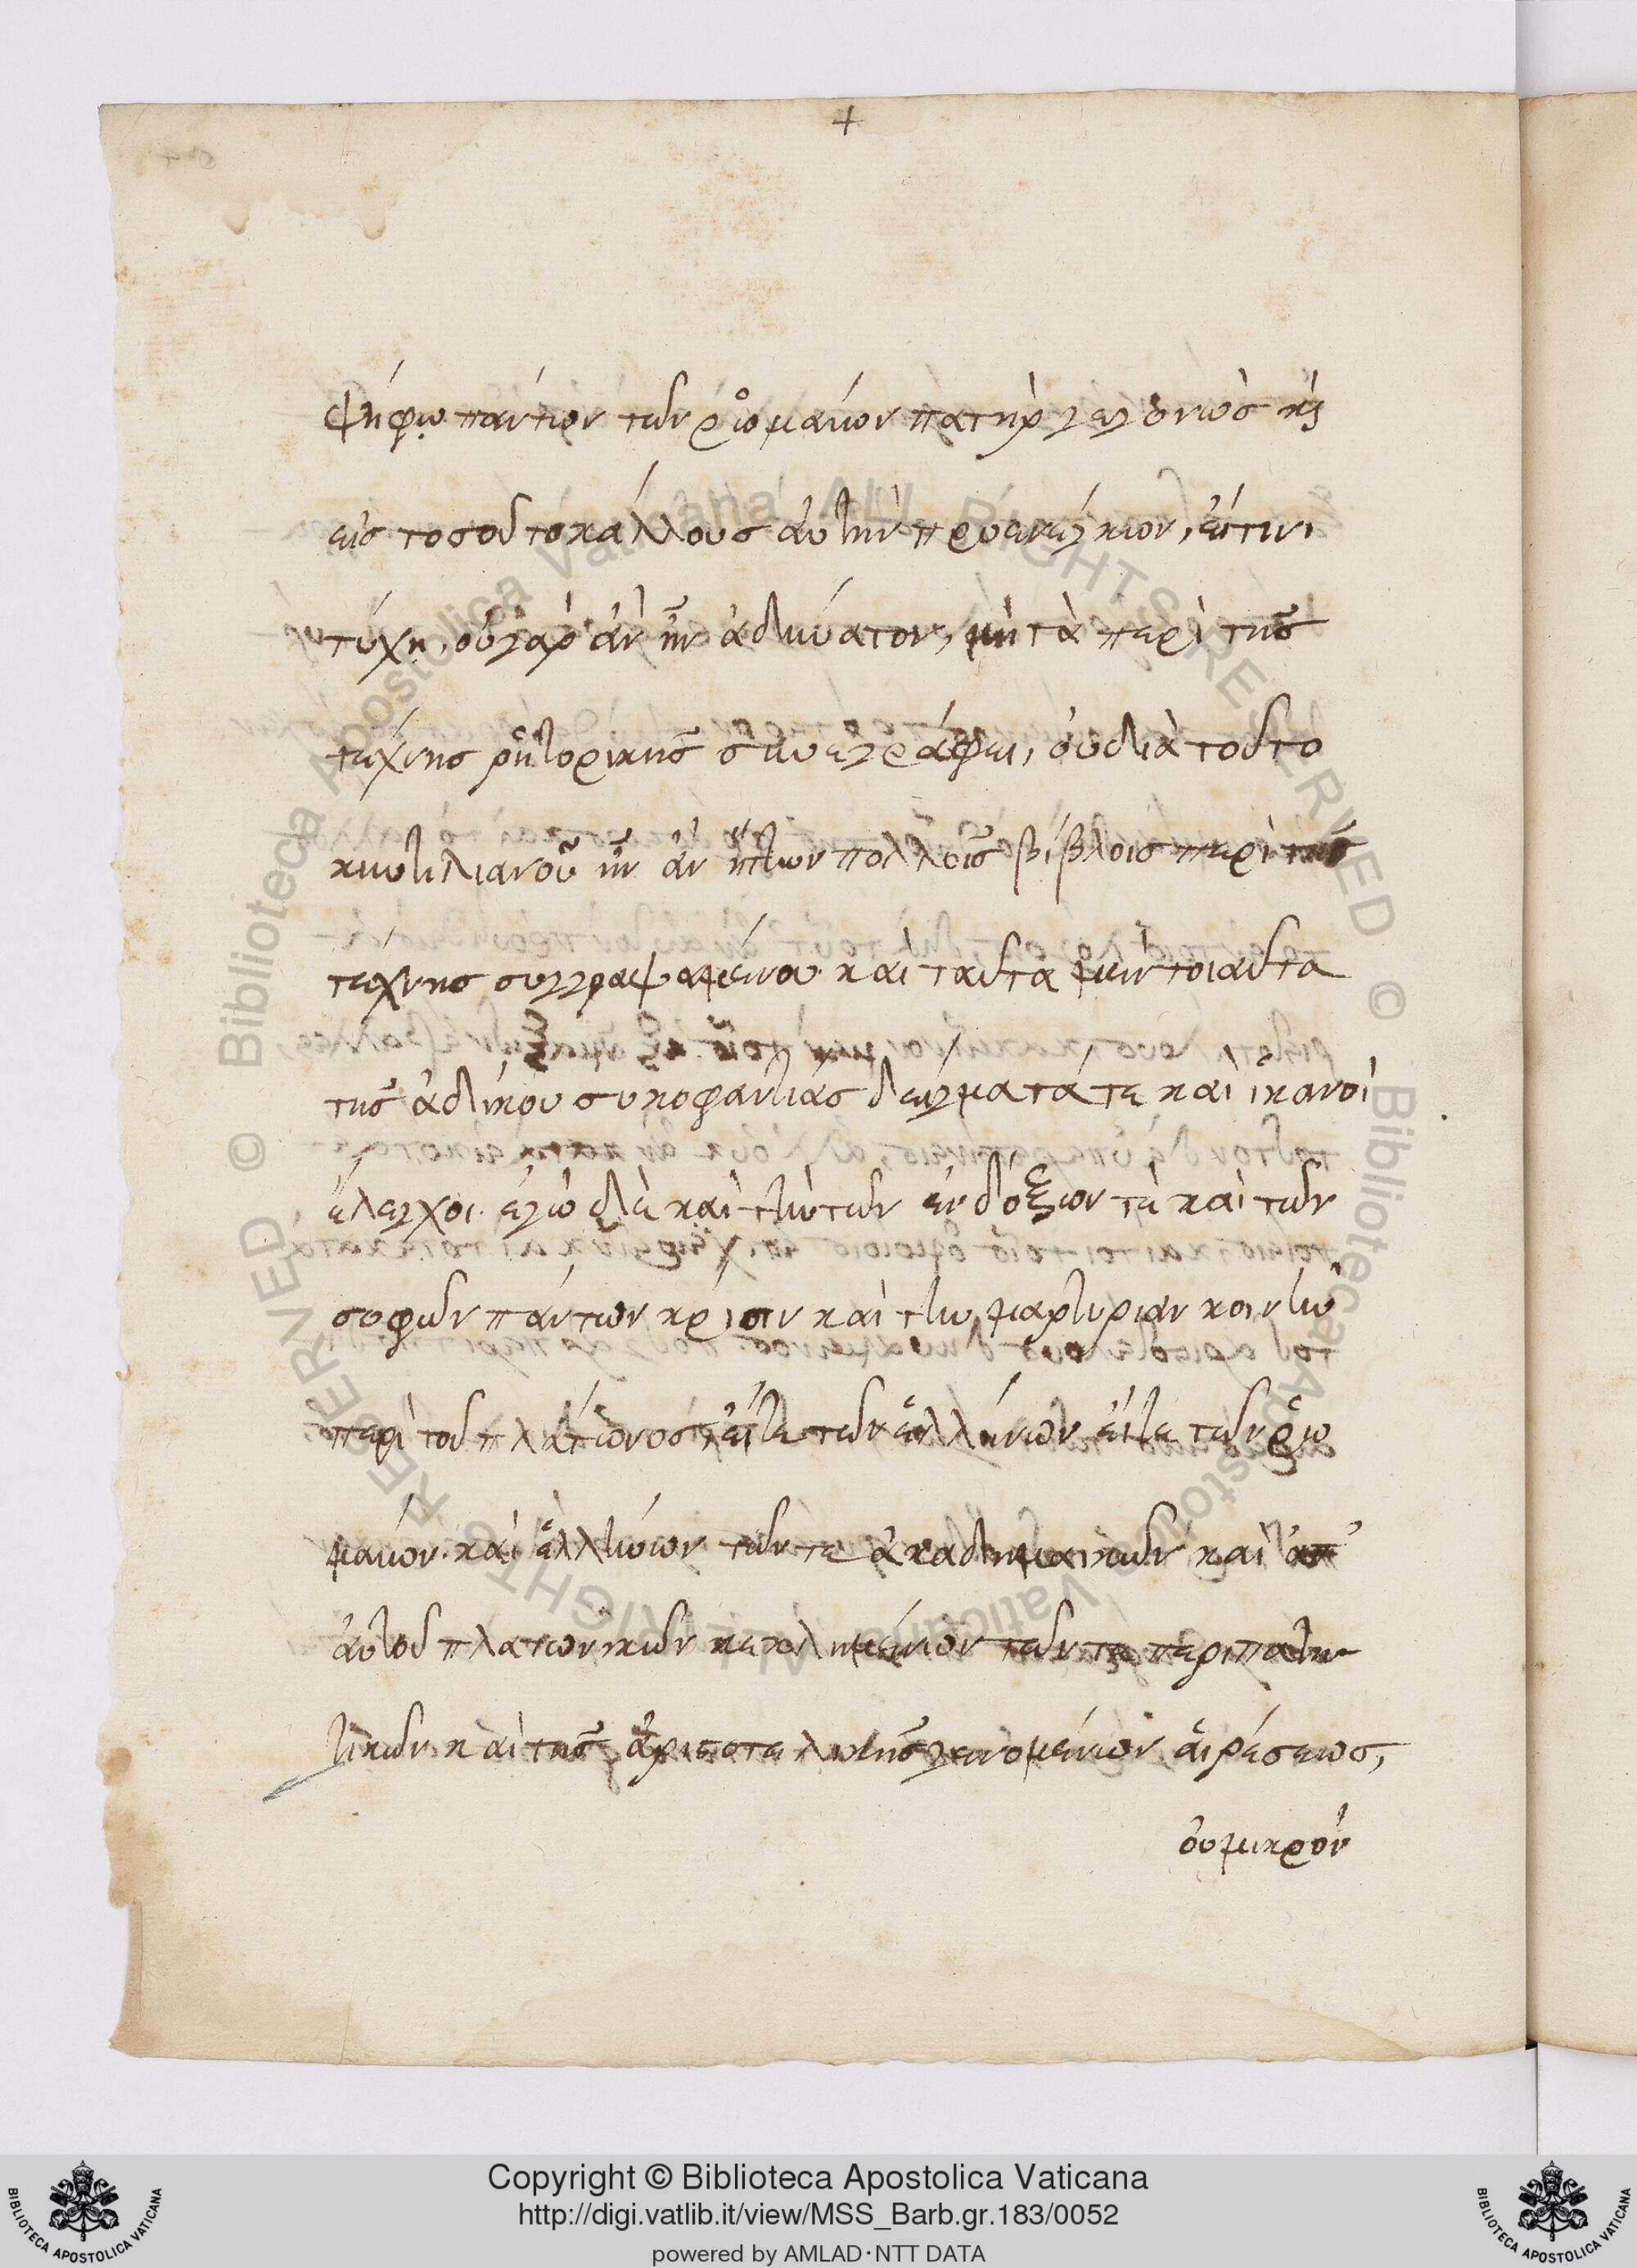 +
ψήφῳ πάντων τῶν ῥωμαίων πατὴρ γεγονὼς κς
εἰς τοσοῦτο κάλλους αὐτὴν προενεγκὼν, εἴ τινι
τύχῃ, οὐ γὰρ ἂν ἦν ἀδύνατον, μὴ τὰ περὶ τῆς
τέχνης ῥητορικῆς συνεγράφει, οὐ διὰ τοῦτο
κυντιλιανοῦ ἦν ἂν ἥττων πολλοῖς βίβλοις περὶ τῆς
τέχνης συγγραψαμένου. καὶ ταῦτα μὲν τοιαῦτα
τῆς ἀδίκου συκοφαντίας δείγματά τε καὶ ἱκανοὶ
ἔλεγχοι. ἐγὼ δὲ καὶ τὴν τῶν ἐνδόξων τὲ καὶ τῶν
σοφῶν πάντων κρίσιν καὶ τὴν μαρτυρίαν κοινὴν
περὶ τοῦ πλάτωνος, εἴτε τῶν ἑλλήνων εἴτε τῶν ῥω
μαίων. καὶ ἑλλήνων τῶν τε ἀκαδημαικῶν καὶ ἀπ'
αὐτοῦ πλατωνικῶν κεκλημένων τῶν τε περιπατη
τικῶν καὶ τῆς ἀριστοτελικῆς γενομένων αἱρέσεως,
οὐ μικρὸν
Copyright © Biblioteca Apostolica Vaticana
http://digi.vatlib.it/view/MSS_Barb.gr.183/0052
powered by AMLAD·NTT DATA
BIBLIOTECA APOSTOLICA VATICANA
BIBLIOTECA APOSTOLICA VATICANA
© Biblioteca Apostolica Vaticana ALL RIGHTS RESERVED
© Biblioteca Apostolica Vaticana ALL RIGHTS RESERVED